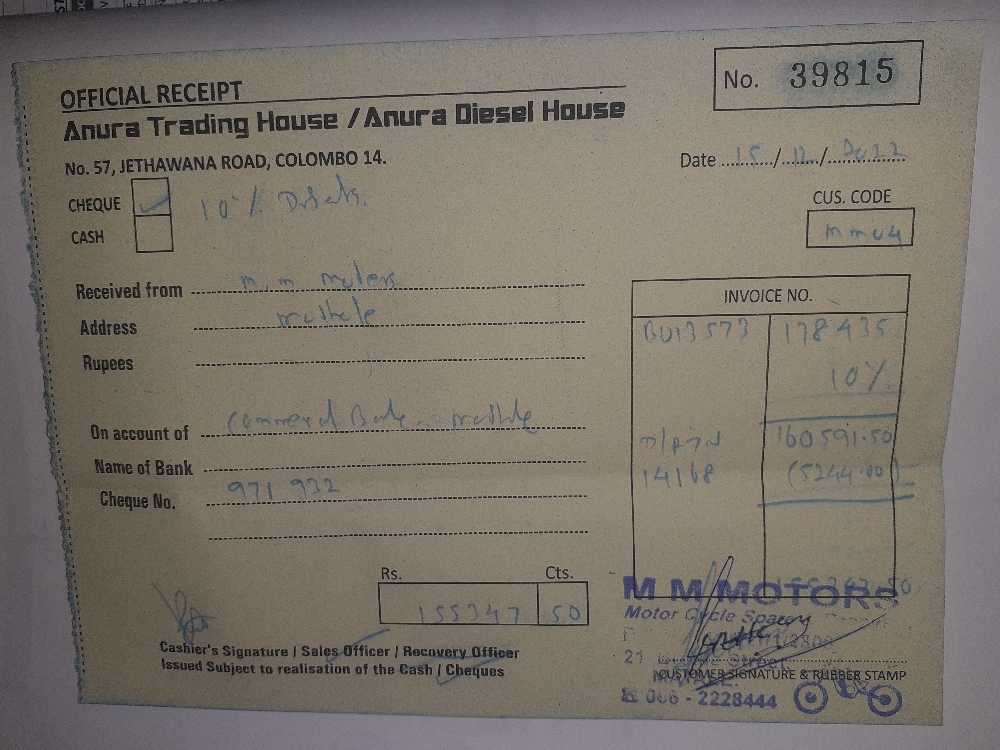 OFFICIAL RECEIPT
No. 39815
Anura Trading House / Anura Diesel House
No. 57, JETHAWANA ROAD, COLOMBO 14.
Date 15/12/2022
CHEQUE 10%
CASH
CUS. CODE
mm04
Received from m.m motors
Address
Rupees
INVOICE NO.
BU13573 178435
10%
On account of Bank
160591.50
Name of Bank
14168 (5244.00)
Cheque No. 971 932
Rs. Cts.
155347 50
155347.50
M M MOTORS
Motor Cycle Spares
21 Street
MATALE.
☎ 066 - 2228444
Cashier's Signature / Sales Officer / Recovery Officer
Issued Subject to realisation of the Cash / Cheques
CUSTOMER SIGNATURE & RUBBER STAMP